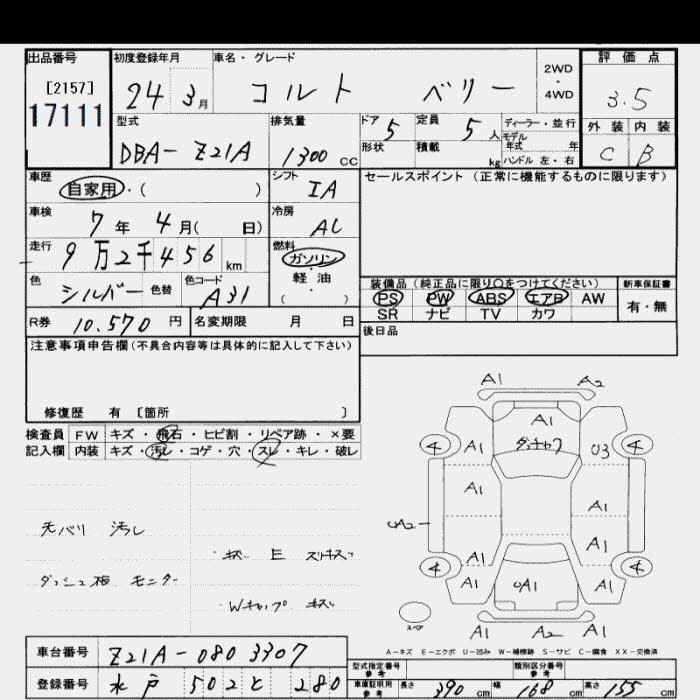 出品番号
[2157]
17111
初度登録年月
24 3月
車名・グレード
コルト ベリー
2WD
・
4WD
評価点
3.5
外装 内装
C B
型式
DBA-Z21A
排気量
1300 CC
ドア 5
定員 5人
形状
積載 kg
ディーラー・並行
モデル年式 年
ハンドル 左・右
車歴
自家用・( )
シフト
IA
セールスポイント(正常に機能するものに限ります)
車検
7年 4月( 日)
冷房
AC
走行
9万2千456 km
燃料
ガソリン
軽油
( ・ )
色
シルバー
色替
色コード
A31
装備品(純正品に限り○をつけてください)
PS PW ABS エアB AW
SR ナビ TV カワ
新車保証書
有・無
R券 10,570円
名変期限 月 日
後日品
注意事項申告欄(不具合内容等は具体的に記入して下さい)
修復歴 有 [箇所 ]
検査員記入欄
FW キズ・飛石・ヒビ割・リペア跡・×要
内装 キズ・汚レ・コゲ・穴・スレ・キレ・破レ
天バリ 汚レ
キズ E
ダッシュ板 モニター
Wキャップ キズ
A1 A2
A1
4 A1 U3 4
A1 A1
UA2 A1
A1 A1
4 A1 UA1 A1 4
A1 A2 A1
スペア
A-キズ E-エクボ U-凹み W-補修跡 S-サビ C-腐食 XX-交換済
車台番号 Z21A-0803307
登録番号 水戸 502 と 280
型式指定番号 参考
類別区分番号 参考
車庫証明用 参考
長さ 390 cm
幅 168 cm
高さ 155 cm